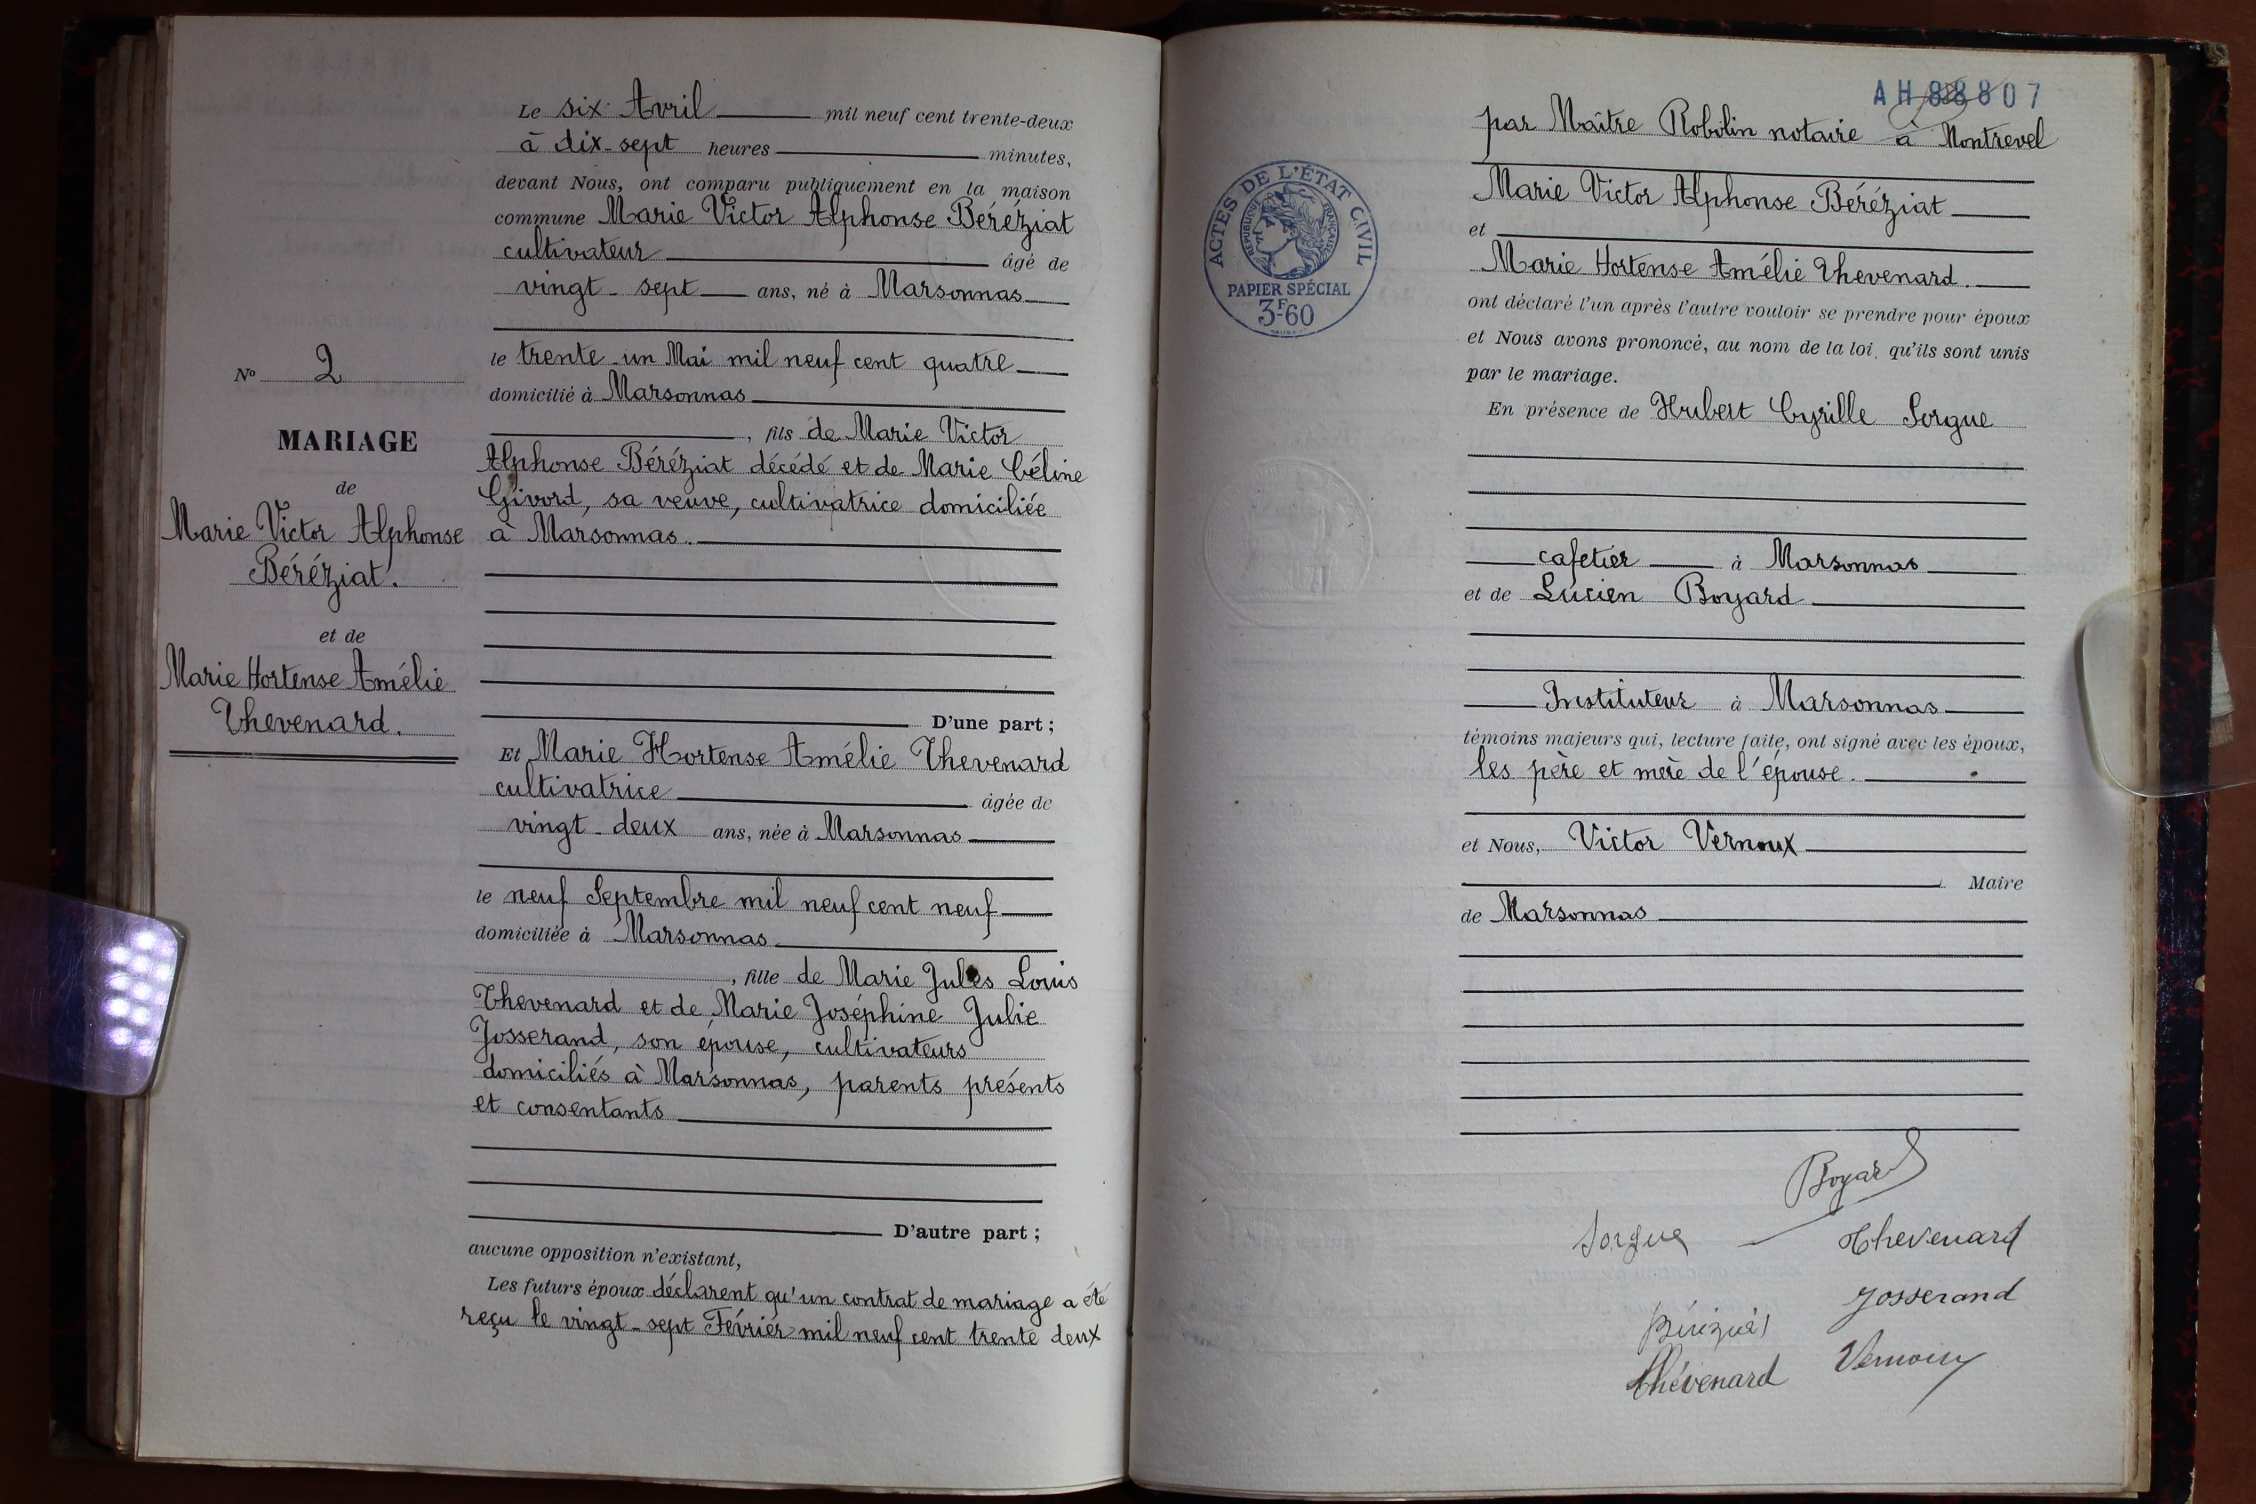 Nº 2
MARIAGE
de
Marie Victor Alphonse
Béréziat.
et de
Marie Hortense Amélie
Thevenard.
Le six Avril mil neuf cent trente-deux
à dix-sept heures minutes,
devant Nous, ont comparu publiquement en la maison
commune Marie Victor Alphonse Béréziat
cultivateur âgé de
vingt-sept ans, né à Marsonnas
le trente-un Mai mil neuf cent quatre
domicilié à Marsonnas
, fils de Marie Victor
Alphonse Béréziat décédé et de Marie Céline
Givord, sa veuve, cultivatrice domiciliée
à Marsonnas.
D'une part ;
Et Marie Hortense Amélie Thevenard
cultivatrice âgée de
vingt-deux ans, née à Marsonnas
le neuf Septembre mil neuf cent neuf
domiciliée à Marsonnas
, fille de Marie Jules Louis
Thevenard et de Marie Joséphine Julie
Josserand, son épouse, cultivateurs
domiciliés à Marsonnas, parents présents
et consentants
D'autre part ;
aucune opposition n'existant,
Les futurs époux déclarent qu'un contrat de mariage a été
reçu le vingt-sept Février mil neuf cent trente deux
AH 88807
par Maître Robolin notaire à Montrevel
ACTES DE L'ÉTAT CIVIL
RÉPUBLIQUE FRANÇAISE
PAPIER SPÉCIAL
3F60
Marie Victor Alphonse Béréziat
et
Marie Hortense Amélie Thevenard.
ont déclaré l'un après l'autre vouloir se prendre pour époux
et Nous avons prononcé, au nom de la loi, qu'ils sont unis
par le mariage.
En présence de Hubert Cyrille Sorgue
cafetier à Marsonnas
et de Lucien Boyard
Instituteur à Marsonnas
témoins majeurs qui, lecture faite, ont signé avec les époux,
les père et mère de l'épouse.
et Nous, Victor Vernoux
Maire
de Marsonnas
Boyard
Sorgue
Thevenard
Josserand
Béréziat
Vernoux
Thévenard